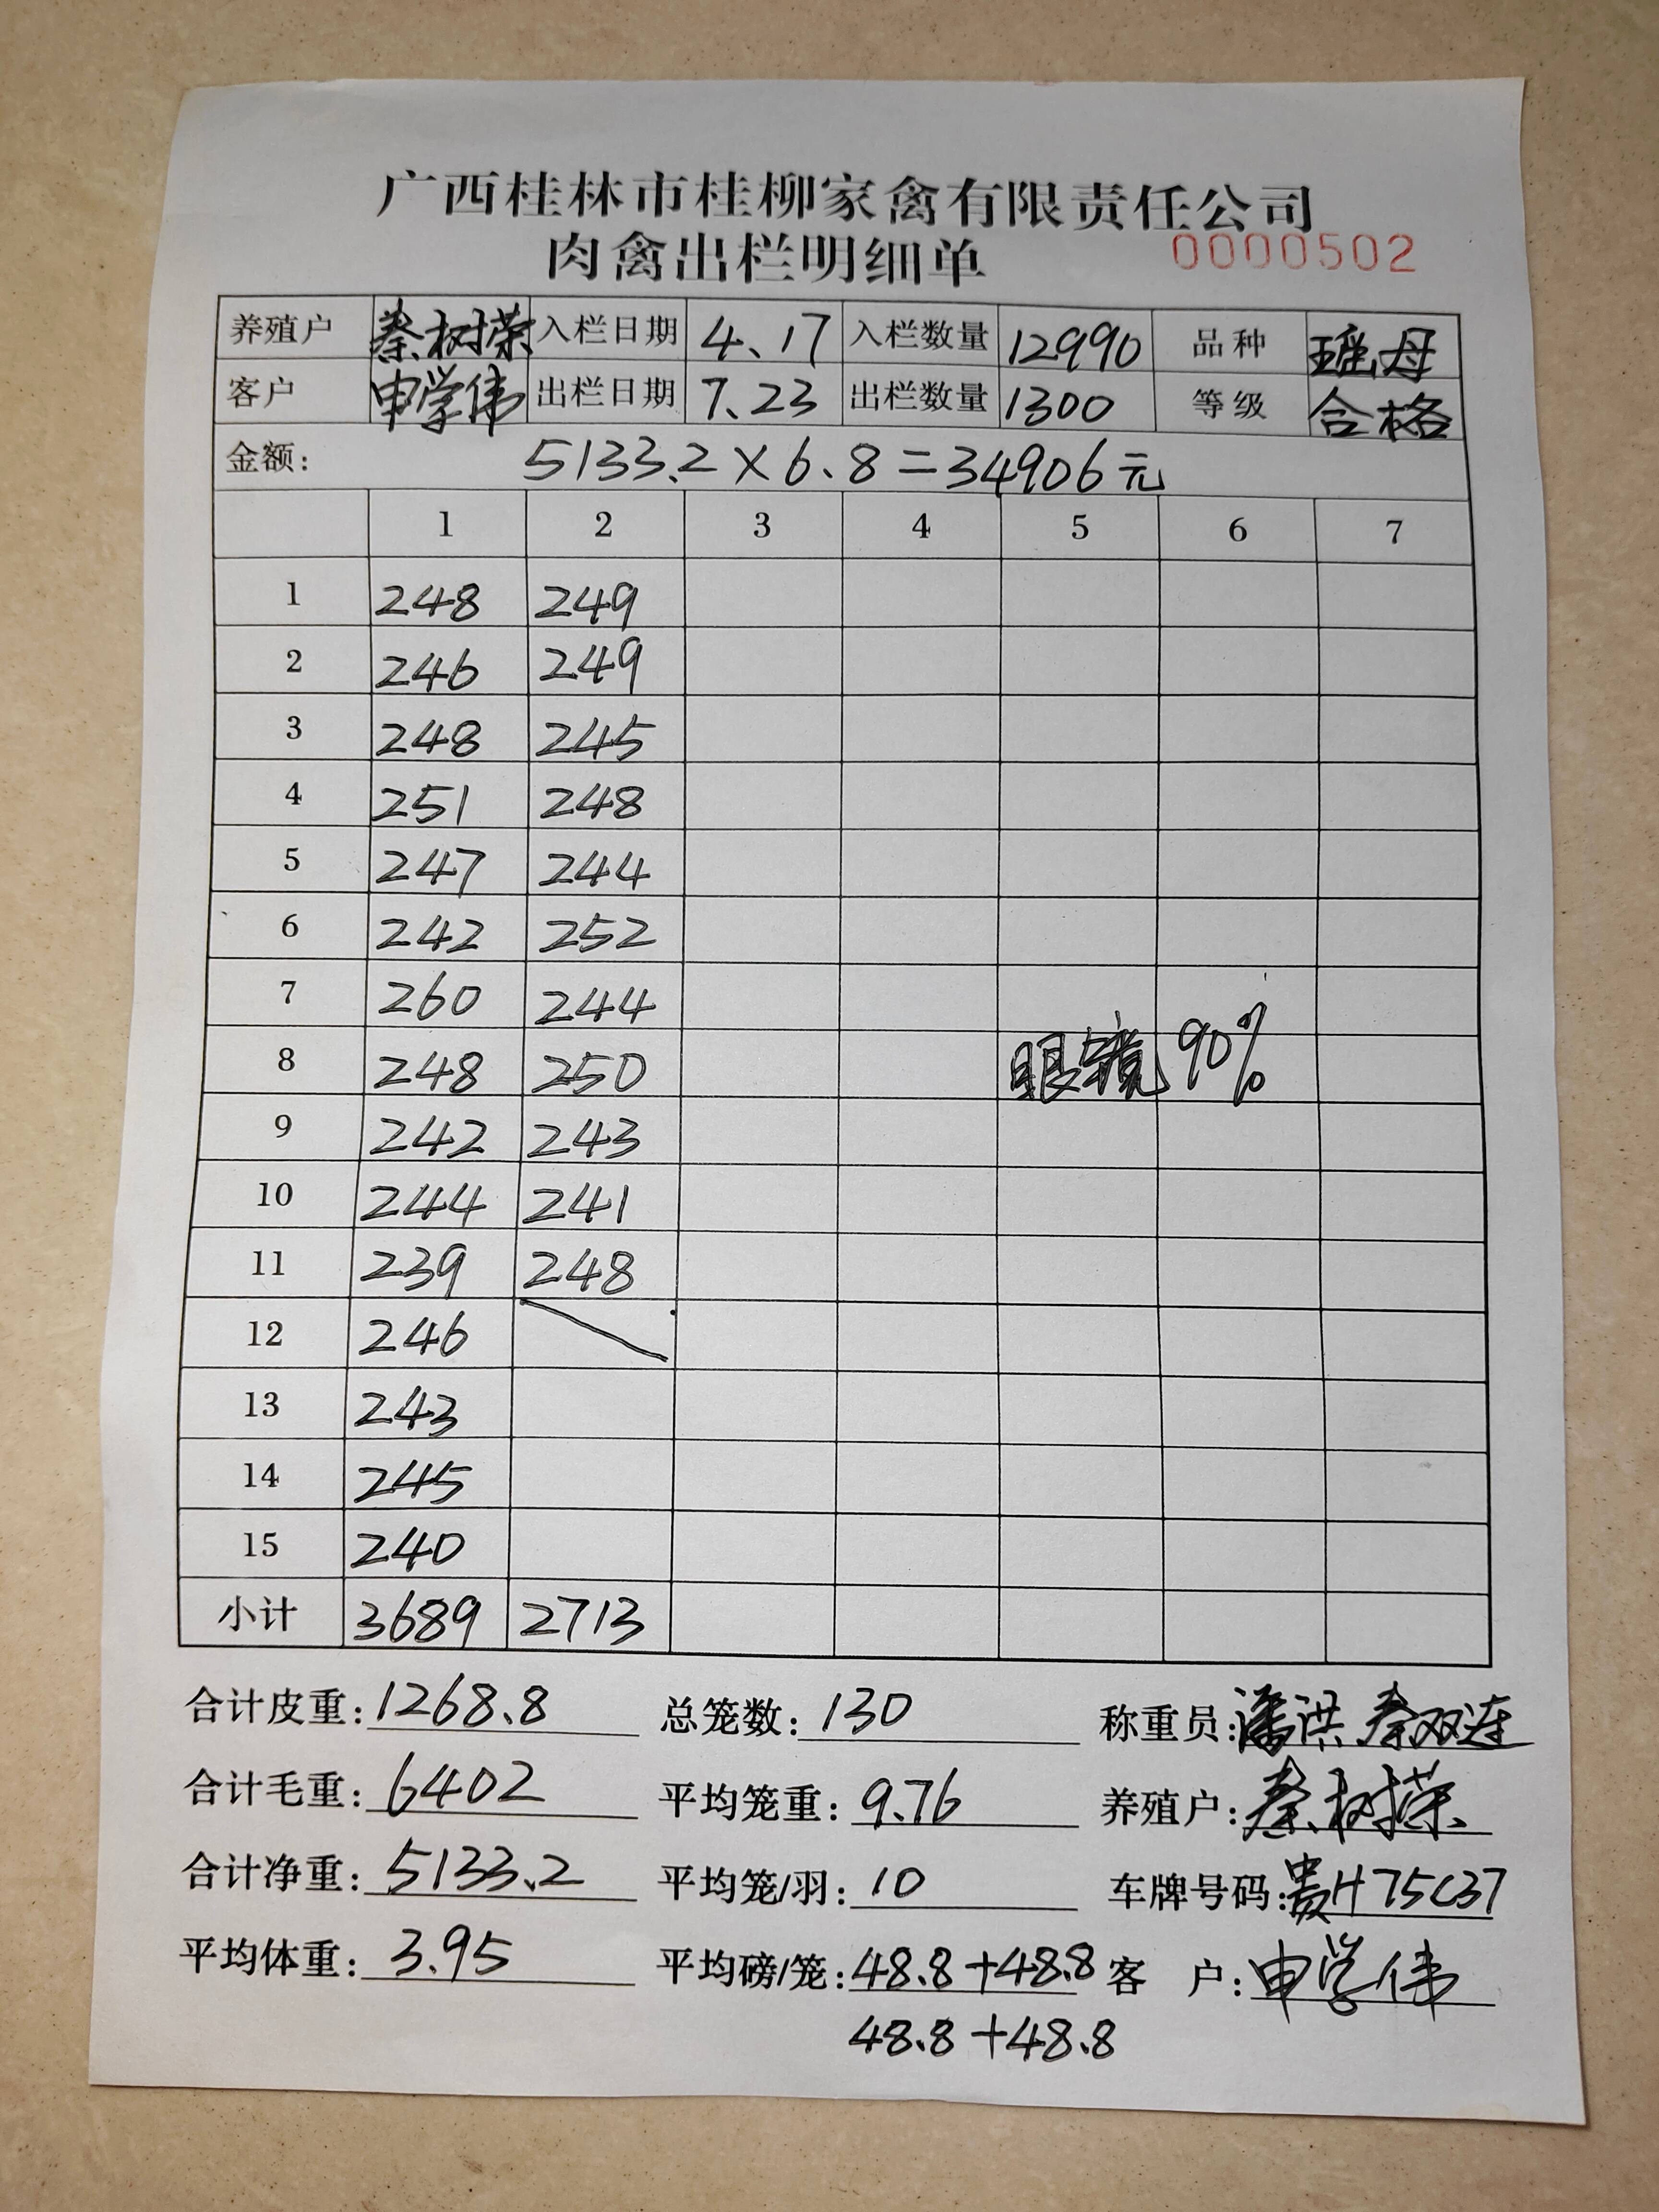 广西桂林市桂柳家禽有限责任公司
肉禽出栏明细单 0000502
养殖户 秦树荣 入栏日期 4、17 入栏数量 12990 品种 瑶母
客户 申学伟 出栏日期 7、23 出栏数量 1300 等级 合格
金额: 5133.2×6.8=34906元
1 2 3 4 5 6 7
1 248 249
2 246 249
3 248 245
4 251 248
5 247 244
6 242 252
7 260 244
8 248 250 眼镜 90%
9 242 243
10 244 241
11 239 248
12 246
13 243
14 245
15 240
小计 3689 2713
合计皮重: 1268.8 总笼数: 130 称重员: 潘洪 秦双连
合计毛重: 6402 平均笼重: 9.76 养殖户: 秦树荣
合计净重: 5133.2 平均笼/羽: 10 车牌号码: 贵H75C37
平均体重: 3.95 平均磅/笼: 48.8+48.8 客 户: 申学伟
48.8+48.8